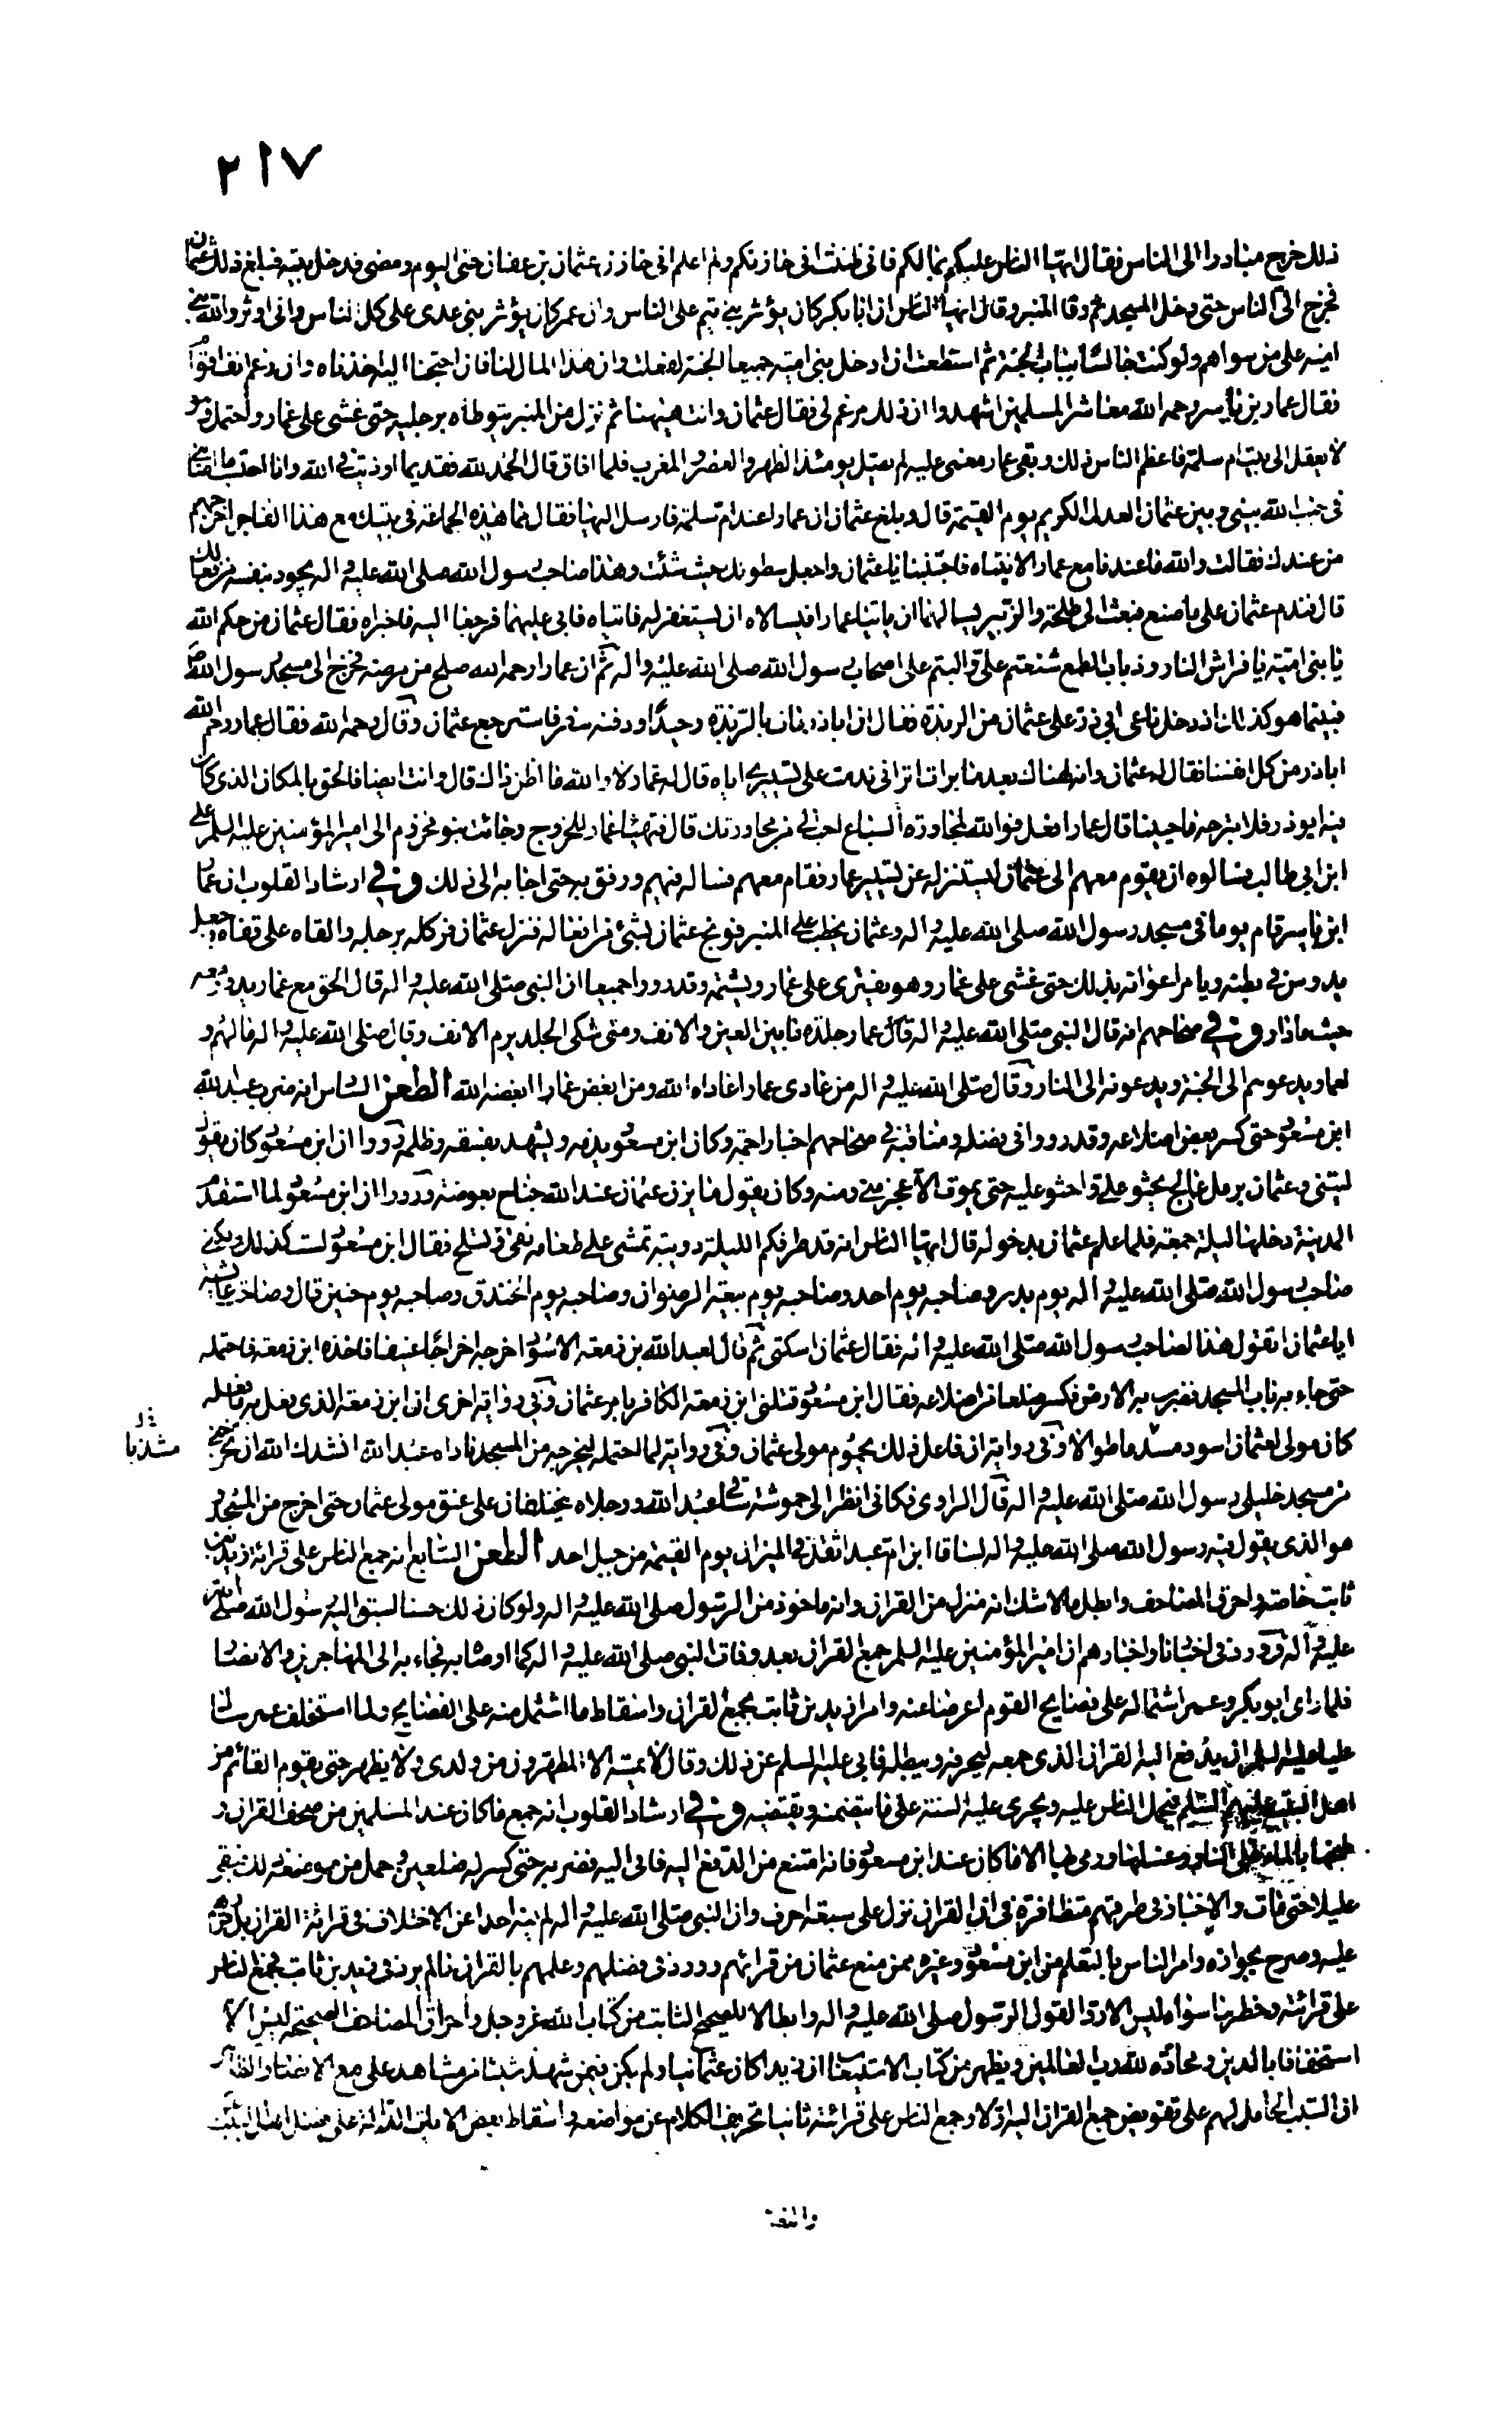 ٢١٧
ذلك خرج مبادرا الى الناس فقال ايها الناس عليكم بمالكم فاني ظننت اني خازنكم ولم اعلم اني خازن عثمان بن عفان حتى اليوم ومضى فدخل بيته فبلغ ذلك عثمان
فخرج الى الناس حتى دخل المسجد ثم رقا المنبر وقال ايها الناس ان ابا بكر كان يؤثر بني تيم على الناس وان عمر كان يؤثر بني عدى على كل الناس واني اوثر والله بني
امية على من سواهم ولو كنت جالسا بباب الجنة ثم استطعت ان ادخل بني امية جميعا الجنة لفعلت وان هذا المال لنا فان احتجنا اليه اخذناه وان رغم انف اقوام
فقال عمار بن ياسر رحمه الله معاشر المسلمين اشهدوا ان ذلك مرغم لي فقال عثمان وانت هيهنا ثم نزل من المنبر يتوطاه برجليه حتى غشى على عمار واحتمل وهو
لا يعقل الى بيت ام سلمة فاعظم الناس ذلك وبقى عمار مغمى عليه لم يصل يومئذ الظهر والعصر والمغرب فلما افاق قال الحمد لله فقديما اوذيت في الله وانا احتسب ما اصابني
في جنب الله بيني وبين عثمان العدل الكريم يوم القيمة قال وبلغ عثمان ان عمارا عند ام سلمة فارسل اليها فقال ما هذه الجماعة في بيتك مع هذا الفاجر اخرجهم
من عندك فقالت والله ما عندنا مع عمار الا بنتاه فاجتنبنا يا عثمان واجعل سطوتك حيث شئت وهذا صاحب رسول الله صلى الله عليه واله يجود بنفسه من فعالك
قال فندم عثمان على ما صنع فبعث الى طلحة والزبير يسالهما ان ياتيا عمارا فيسالاه ان يستغفر له فاتياه فابى عليهما فرجعا اليه فاخبراه فقال عثمان من حكم الله
يا بني امية يا فراش النار وذباب الطمع شنعتم علي والبتم على اصحاب رسول الله صلى الله عليه واله ثم ان عمارا رحمه الله صلح من مرضه فخرج الى مسجد رسول الله ص
فبينما هو كذلك اذ دخل ناعى ابي ذر على عثمان من الربذة فقال ان اباذر مات بالربذة وحيدا ودفنه سفر فاسترجع عثمان وقال رحمه الله فقال عمار رحم الله
اباذر من كل انفسنا فقال له عثمان وانك لهناك بعد ما برات اتراني ندمت على تسييري اياه قال له عمار لا والله ما اظن ذاك قال وانت ايضا فالحق بالمكان الذي كان
فيه ابوذر فلا تبرحه ما حيينا قال عمار افعل فوالله لمجاورة السباع احب الي من مجاورتك قال فتهيئا عمار للخروج وجائت بنو مخزوم الى امير المؤمنين عليه السلم علي
ابن ابي طالب فسالوه ان يقوم معهم الى عثمان ليستنزله عن تسيير عمار فقام معهم فساله فيهم ورفق به حتى اجابه الى ذلك وفي ارشاد القلوب ان عمار
ابن ياسر قام يوما في مسجد رسول الله صلى الله عليه واله وعثمان يخطب على المنبر فوبخ عثمان بشئ من افعاله فنزل عثمان فركله برجله والقاه على قفاه وجعل
يدوس في بطنه ويامر اعوانه بذلك حتى غشى على عمار وهو يفترى على عمار ويشتمه وقد رووا جميعا ان النبي صلى الله عليه واله قال الحق مع عمار يدور معه
حيث ما دار وفي صحاحهم انه قال النبي صلى الله عليه واله قال عمار جلدة ما بين العين والانف ومتى شكى الجلد يرم الانف وقال صلى الله عليه واله ما لهم و
لعمار يدعوهم الى الجنة ويدعونه الى النار وقال صلى الله عليه واله من عادى عمارا عاداه الله ومن ابغض عمارا ابغضه الله الطعن السادس انه ضرب عبد الله
ابن مسعود حتى كسر بعض اضلاعه وقد رووا في فضله ومناقبه في صحاحهم اخبارا جمة وكان ابن مسعود يذمه ويشهد بفسقه وظلمه ورووا ان ابن مسعود كان يقول
ليتني وعثمان برمل عالج يحثو علي واحثو عليه حتى يموت الاعجز مني ومنه وكان يقول ما يزن عثمان عند الله جناح بعوضة ورووا ان ابن مسعود لما استقدم
المدينة دخلها ليلة جمعة فلما علم عثمان بدخوله قال ايها الناس انه قد طرقكم الليلة دويبة تمشى على طعامه تقئ وتسلح فقال ابن مسعود لست كذلك ولكني
صاحب رسول الله صلى الله عليه واله يوم بدر وصاحبه يوم احد وصاحبه يوم بيعة الرضوان وصاحبه يوم الخندق وصاحبه يوم حنين قال وصاحت عايشة
ايا عثمان اتقول هذا لصاحب رسول الله صلى الله عليه واله فقال عثمان اسكتى ثم قال لعبد الله بن زمعة الاسود اخرجه اخراجا عنيفا فاخذه ابن زمعة فاحتمله
حتى جاء به باب المسجد فضرب به الارض فكسر ضلعا من اضلاعه فقال ابن مسعود قتلني ابن زمعة الكافر بامر عثمان وفي رواية اخرى ان ابن زمعة الذي فعل به ما فعله
كان مولى لعثمان اسود مسدما طوالا وفي رواية ان فاعل ذلك يحموم مولى عثمان وفي رواية لما احتمله ليخرجه من المسجد ناداه عبد الله انشدك الله ان تخرجني
من مسجد خليلي رسول الله صلى الله عليه واله قال الراوى فكاني انظر الى حموشة ساقي عبد الله ورجلاه تختلفان على عنق مولى عثمان حتى اخرج من المسجد
هو الذي يقول فيه رسول الله صلى الله عليه واله لساقا ابن ام عبد اثقل في الميزان يوم القيمة من جبل احد الطعن السابع انه جمع الناس على قرائة زيد بن
ثابت خاصة واحرق المصاحف وابطل ما لا شك انه منزل من القران وانه ماخوذ من الرسول صلى الله عليه واله ولو كان ذلك حسنا لسبق اليه رسول الله صلى الله
عليه واله وورد في اخبارنا واخبارهم ان امير المؤمنين عليه السلم جمع القران بعد وفات النبي صلى الله عليه واله كما اوصا به فجاء به الى المهاجرين والانصار
فلما راى ابوبكر وعمر اشتماله على فضايح القوم اعرضا عنه وامرا زيد بن ثابت بجمع القران واسقاط ما اشتمل منه على الفضايح ولما استخلف عمر سال
عليا عليه السلم ان يدفع اليه القران الذي جمعه ليحرفه ويبطله فابى عليه السلم عن ذلك وقال لا يمسه الا المطهرون من ولدى ولا يظهر حتى يقوم القائم من
اهل البيت عليهم السلم فيحمل الناس عليه ويجرى عليه السنة على ما يتضمنه ويقتضيه وفي ارشاد القلوب انه جمع ما كان عند المسلمين من صحف القران و
طبخها بالماء على النار وغسلها ورمى بها الا ما كان عند ابن مسعود فانه امتنع من الدفع اليه فاتى اليه فضربه حتى كسر له ضلعين وحمل من موضعه ذلك فبقى
عليلا حتى مات والاخبار في طرقهم متظافرة في ان القران نزل على سبعة احرف وان النبي صلى الله عليه واله لم ينه احدا عن الاختلاف في قرائة القران بل قرره
عليه وصرح بجوازه وامر الناس بالتعلم من ابن مسعود وغيره ممن منع عثمان من قرائتهم وورد في فضلهم وعلمهم بالقران ما لم يرد في زيد بن ثابت فجمع الناس
على قرائته وحظر ما سواه ليس الا ردا لقول الرسول صلى الله عليه واله وابطالا للصحيح الثابت من كتاب الله عز وجل واحراق المصاحف الصحيحة ليس الا
استخفافا بالدين ومحادة لله رب العالمين ويظهر من كتاب الاستيعاب ان زيدا كان عثمانيا ولم يكن فيمن شهد شيئا من مشاهد على مع الانصار
ان السبب الحامل لهم على تفويض جمع القران اليه اولا وجمع الناس على قرائته ثانيا تحريف الكلام عن مواضعه واسقاط بعض الايات الدالة على فضل اهل البيت